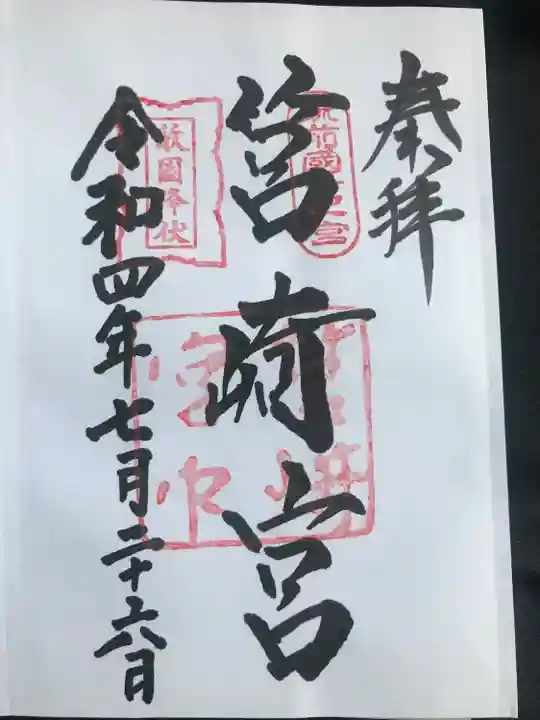 奉拝
筑前國一之宮
筥崎宮
敵国降伏
令和四年七月二十六日